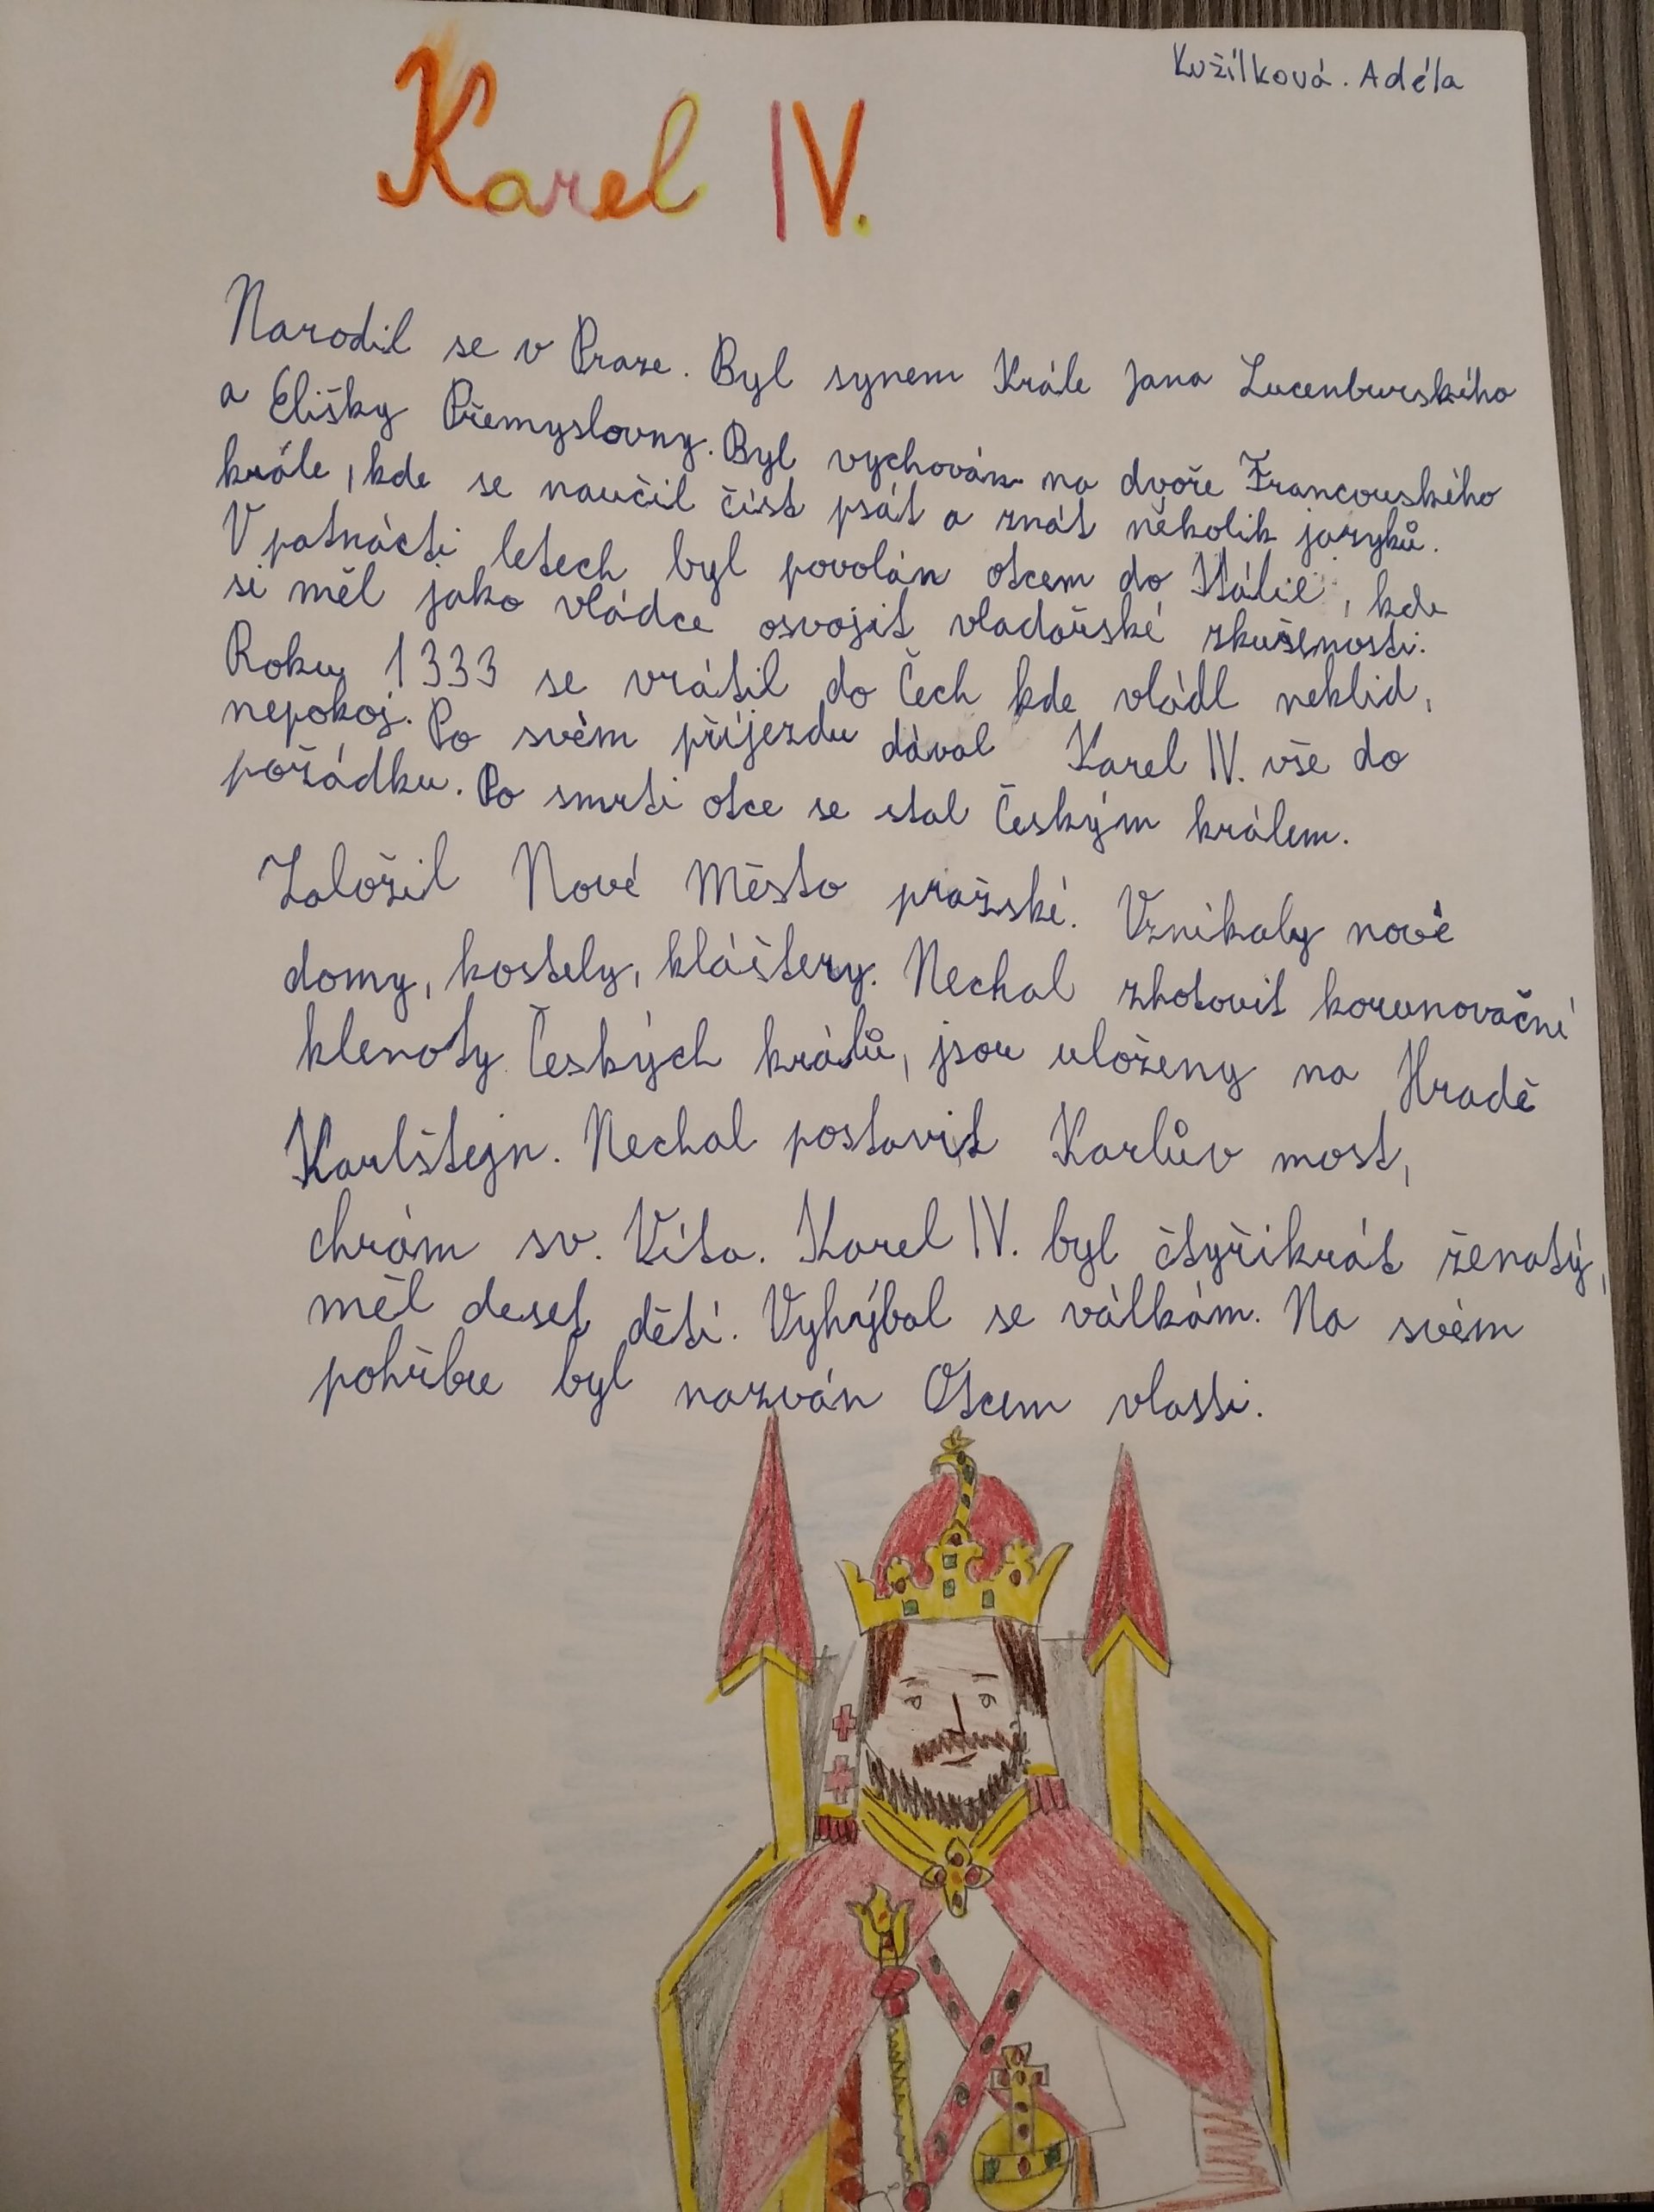 Kužílková. Adéla
Karel IV.
Narodil se v Praze. Byl synem Krále Jana Lucenburského
a Elišky Přemyslovny. Byl vychován na dvoře Francouského
krále, kde se naučil číst psát a znát několik jazyků.
V patnácti letech byl povolán otcem do Itálie, kde
si měl jako vládce osvojit vladařské zkušenosti.
Roku 1333 se vrátil do Čech kde vládl neklid,
nepokoj. Po svém příjezdu dával Karel IV. vše do
pořádku. Po smrti otce se stal Českým králem.
Založil Nové Město pražské. Vznikaly nové
domy, kostely, kláštery. Nechal zhotovit korunovační
klenoty Českých králů, jsou uloženy na Hradě
Karlštejn. Nechal postavit Karlův most,
chrám sv. Víta. Karel IV. byl čtyřikrát ženatý,
měl deset dětí. Vyhýbal se válkám. Na svém
pohřbu byl nazván Otcem vlasti.